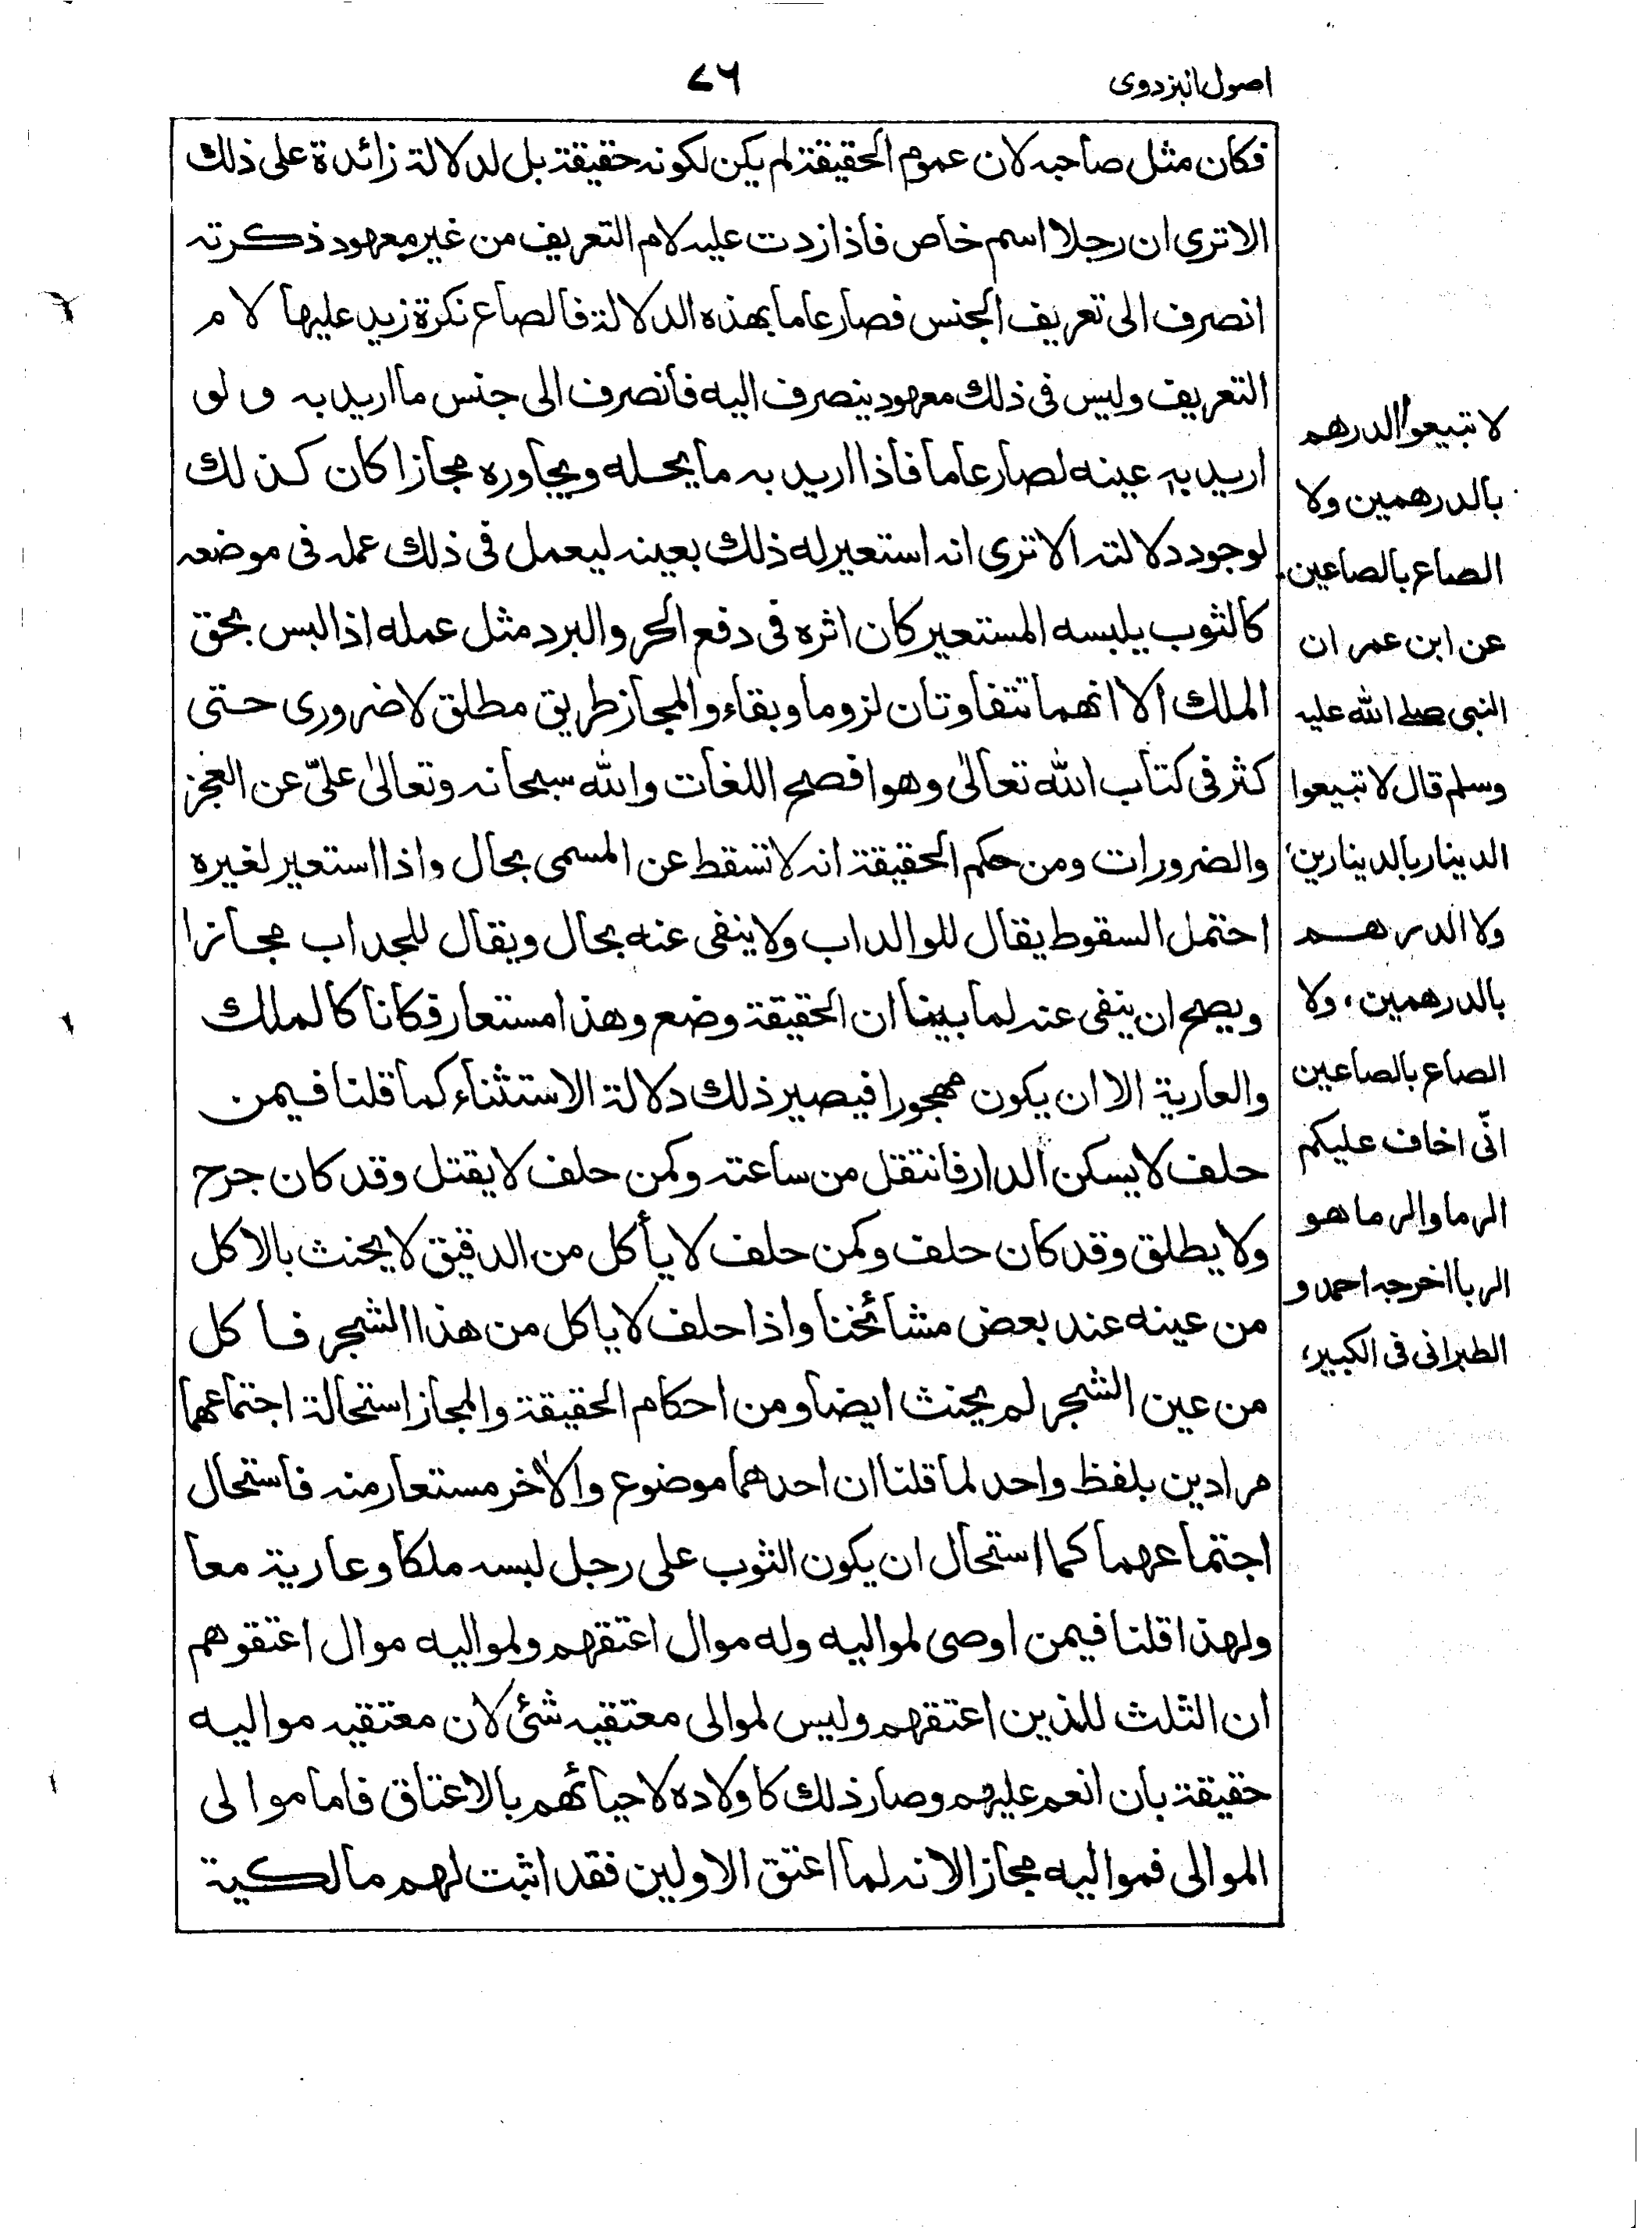 اصول البزدوی
۷۶
فكان مثل صاحبه لان عموم الحقيقة لم يكن لكونه حقيقة بل لدلالة زائدة على ذلك
الا ترى ان رجلا اسم خاص فاذا زدت عليه لام التعريف من غير معهود ذكرته
انصرف الى تعريف الجنس فصار عاما بهذه الدلالة فالصاع نكرة زيد عليها لام
التعريف وليس فى ذلك معهود ينصرف اليه فانصرف الى جنس ما اريد به ولو
اريد به عينه لصار عاما فاذا اريد به ما يحله ويجاوره مجازا كان كذلك
لوجود دلالته الا ترى انه استعير له ذلك بعينه ليعمل فى ذلك عمله فى موضعه
كالثوب يلبسه المستعير كان اثره فى دفع الحر والبرد مثل عمله اذا لبس بحق
الملك الا انهما تتفاوتان لزوما وبقاء والمجاز طريق مطلق لا ضرورى حتى
كثر فى كتاب الله تعالىٰ وهو افصح اللغات والله سبحانه وتعالىٰ علىّ عن العجز
والضرورات ومن حكم الحقيقة انه لا تسقط عن المسمى بحال واذا استعير لغيره
احتمل السقوط يقال للوالد اب ولا ينفى عنه بحال ويقال للجد اب مجازا
ويصح ان ينفى عنه لما بينا ان الحقيقة وضع وهذا مستعار فكانا كالملك
والعارية الا ان يكون مهجورا فيصير ذلك دلالة الاستثناء كما قلنا فيمن
حلف لا يسكن الدار فانتقل من ساعته وكمن حلف لا يقتل وقد كان جرح
ولا يطلق وقد كان حلف وكمن حلف لا يأكل من الدقيق لا يحنث بالاكل
من عينه عند بعض مشائخنا واذا حلف لا ياكل من هذا الشجر فاكل
من عين الشجر لم يحنث ايضا ومن احكام الحقيقة والمجاز استحالة اجتماعهما
مرادين بلفظ واحد لما قلنا ان احدهما موضوع والاٰخر مستعار منه فاستحال
اجتماعهما كما استحال ان يكون الثوب على رجل لبسه ملكا وعارية معا
ولهذا قلنا فيمن اوصى لمواليه وله موال اعتقهم ولمواليه موال اعتقوهم
ان الثلث للذين اعتقهم وليس لموالى معتقيه شئ لان معتقيه مواليه
حقيقة بان انعم عليهم وصار ذلك كاولاده لاحيائهم بالاعتاق فاما موالى
الموالى فمواليه مجازا لانه لما اعتق الاولين فقد اثبت لهم مالكية
لا تبيعوا الدرهم
بالدرهمين ولا
الصاع بالصاعين
عن ابن عمر ان
النبى صلے الله عليه
وسلم قال لا تبيعوا
الدينار بالدينارين،
ولا الدرهم
بالدرهمين، ولا
الصاع بالصاعين
انّى اخاف عليكم
الرما والرما هو
الربا اخرجه احمد و
الطبرانى فى الكبير،